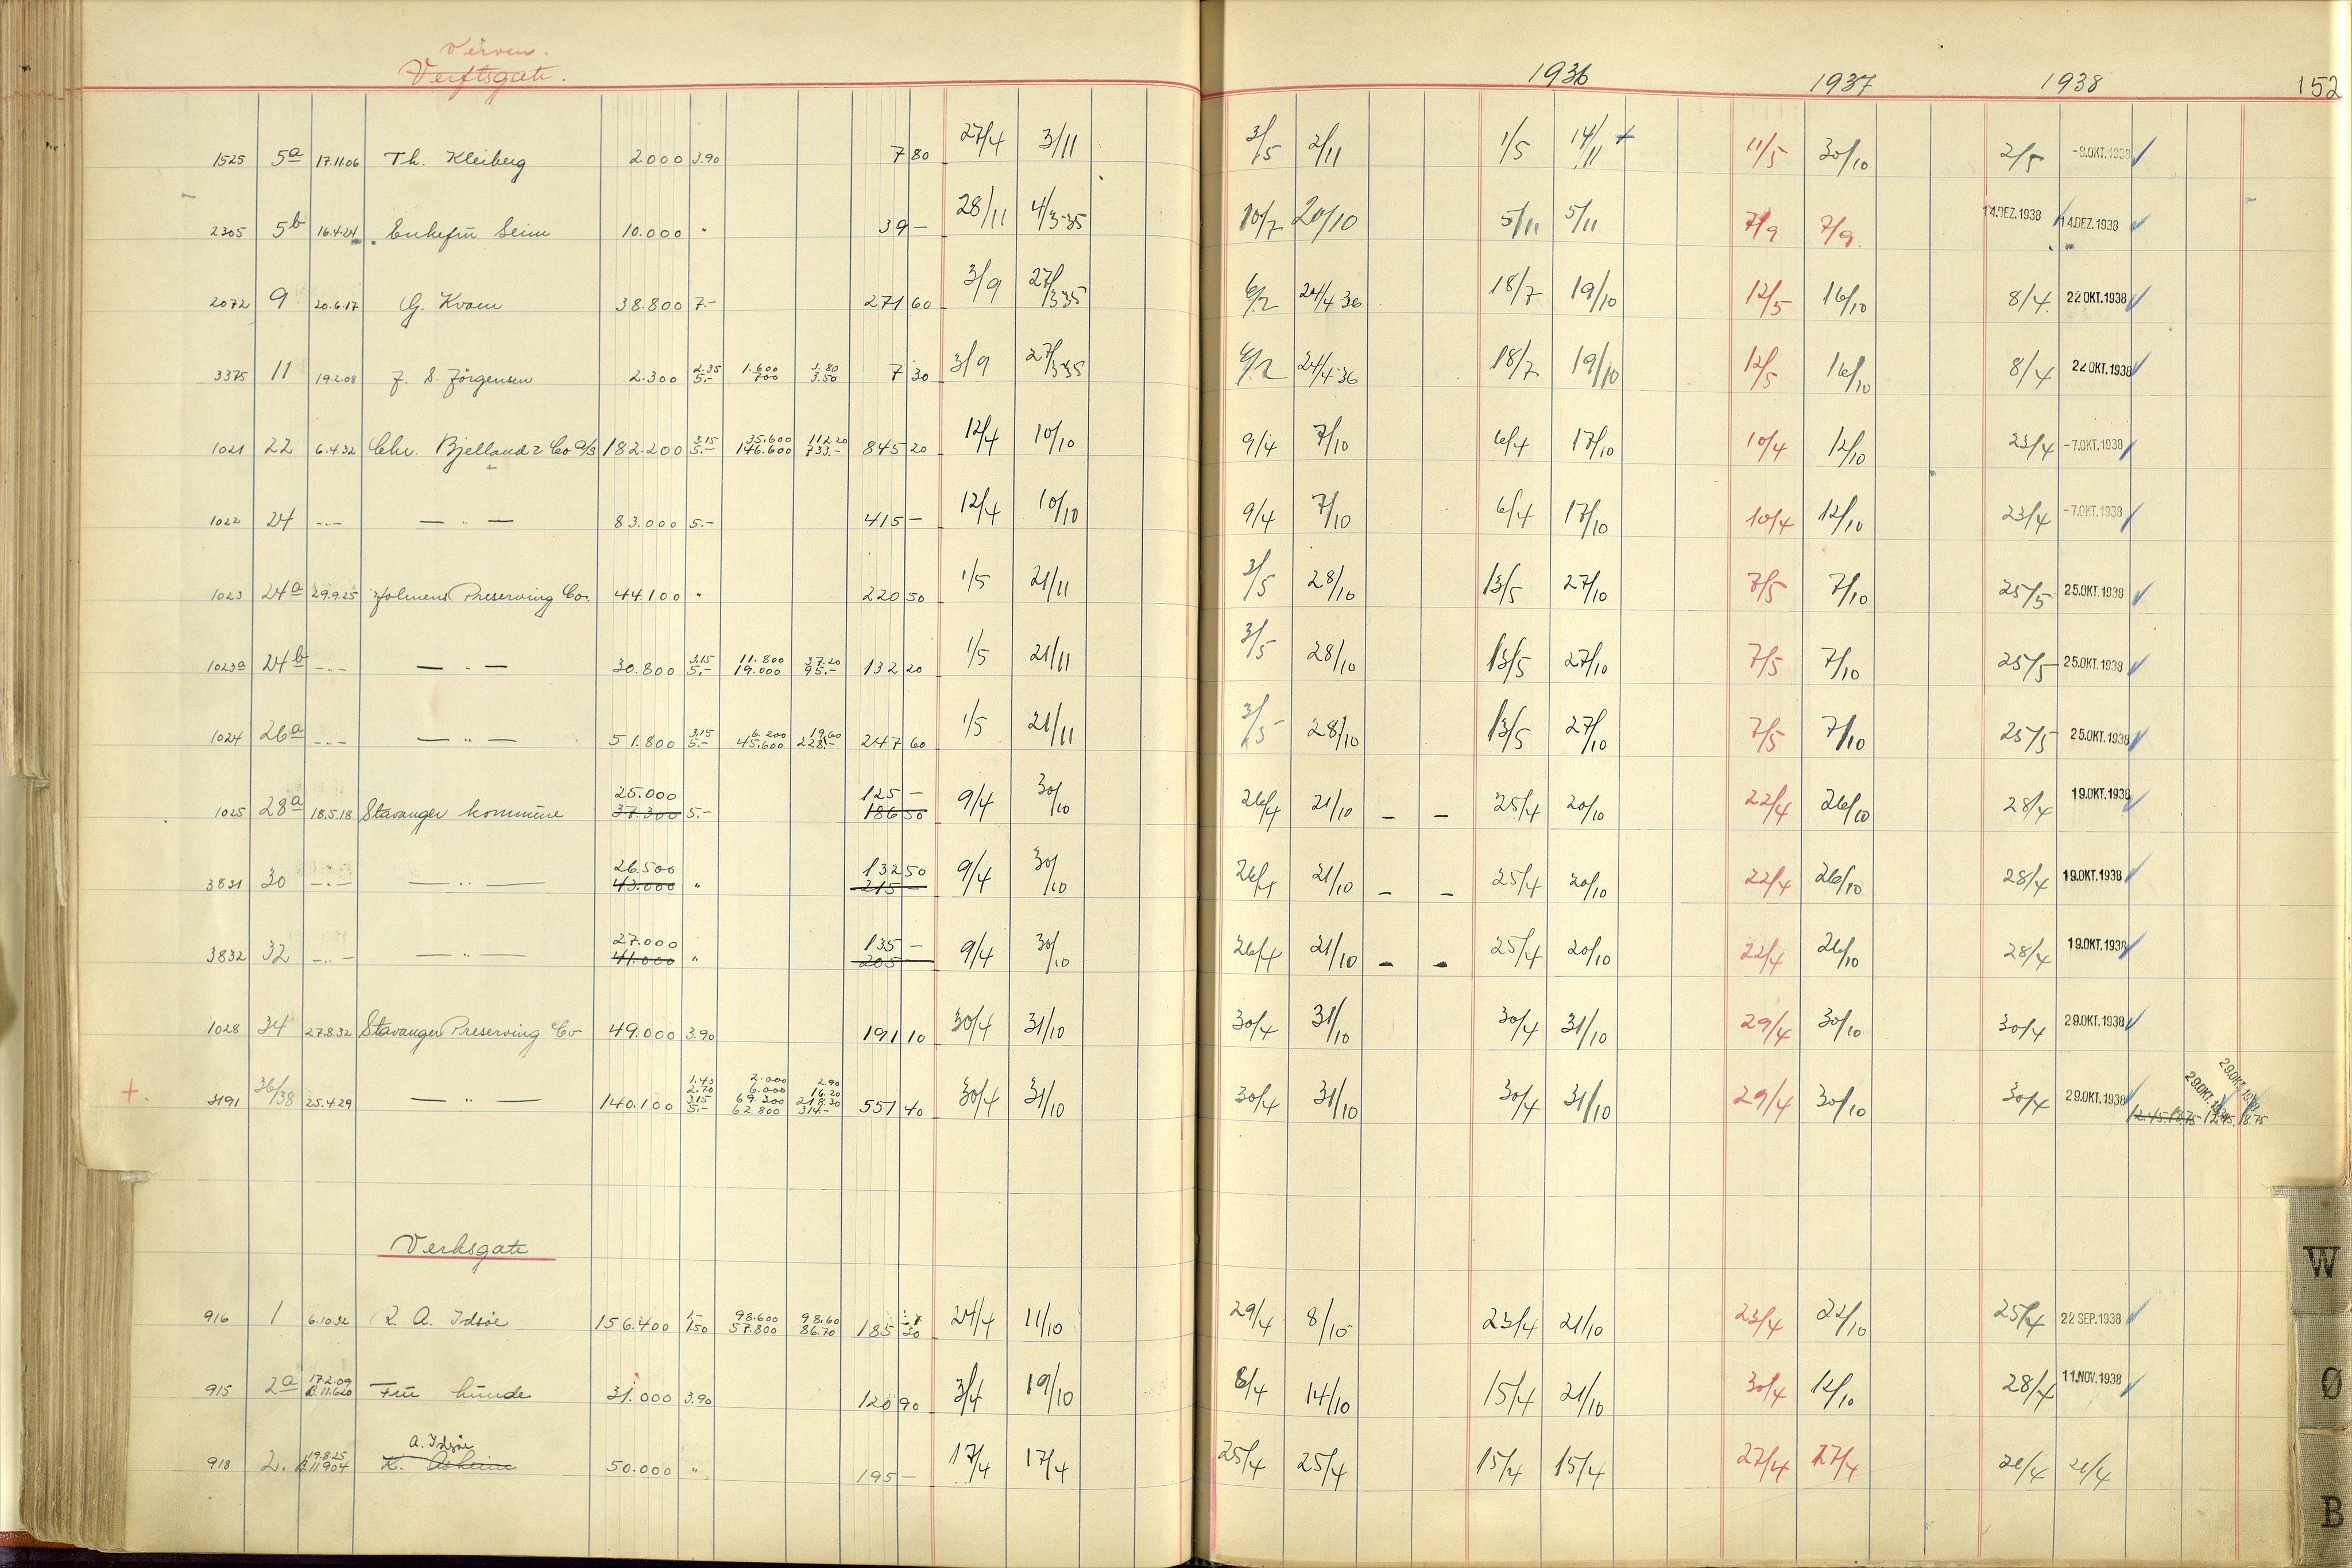 Verven.
Verftsgate.
1936 1937 1938 152
1525 5a 17.11.06 Th. Kleiberg 2.000 3.90 7 80 27/4 3/11 3/5 2/11 1/5 14/11 + 11/5 30/10 2/5 -8.OKT.1938
2305 5b 16.4.24 Enkefru Seim 10.000 " 39 — 28/11 4/3-35 10/7 20/10 5/11 5/11 7/9 7/9. 14.DEZ.1938 14.DEZ.1938
2072 9 20.6.17 G. Kvam 38.800 7.- 271 60 3/9 27/3-35 6/2 24/4-36 18/7 19/10 12/5 16/10 8/4 22 OKT.1938
3375 11 19.2.08 J. S. Jörgensen 2.300 2.35 5.- 1.600 700 3.80 3.50 7 30 3/9 27/3-35 6/2 24/4-36 18/7 19/10 12/5 16/10 8/4 22 OKT.1938
1021 22 6.4.32 Chr. Bjelland & Co a/s 182.200 3.15 5.- 35.600 146.600 112.20 733.- 845 20 12/4 10/10 9/4 7/10 6/4 17/10 10/4 12/10 23/4 -7.OKT.1938
1022 24 -"- — " — 83.000 5.- 415 — 12/4 10/10 9/4 7/10 6/4 17/10 10/4 12/10 23/4 -7.OKT.1938
1023 24a 29.9.25 Holmens Preserving Co. 44.100 " 220 50 1/5 21/11 3/5 28/10 13/5 27/10 7/5 7/10 25/5 25.OKT.1938
1023a 24b -"- — " — 30.800 3.15 5.- 11.800 19.000 37.20 95.- 132 20 1/5 21/11 3/5 28/10 13/5 27/10 7/5 7/10 25/5 25.OKT.1938
1024 26a -"- — " — 51.800 3.15 5.- 6.200 45.600 19.60 228.- 247 60 1/5 21/11 3/5 28/10 13/5 27/10 7/5 7/10 25/5 25.OKT.1938
25.000 125 —
1025 28a 18.5.18 Stavanger kommune 37.300 5.- 186 50 9/4 30/10 26/4 21/10 — — 25/4 20/10 22/4 26/10 28/4 19.OKT.1938
26.500 132 50
3831 30 -"- — " — 43.000 " 215 — 9/4 30/10 26/4 21/10 — — 25/4 20/10 22/4 26/10 28/4 19.OKT.1938
27.000 135 —
3832 32 -"- — " — 41.000 " 205 — 9/4 30/10 26/4 21/10 — — 25/4 20/10 22/4 26/10 28/4 19.OKT.1938
1028 34 27.8.32 Stavanger Preserving Co 49.000 3.90 191 10 30/4 31/10 30/4 31/10 30/4 31/10 29/4 30/10 30/4 29.OKT.1938
+. 3191 36/38 25.4.29 — " — 140.100 1.45 2.70 3.15 5.- 2.000 6.000 69.300 62.800 2.90 16.20 218.30 314.- 551 40 30/4 31/10 30/4 31/10 30/4 31/10 29/4 30/10 30/4 29.OKT.1938 29.OKT.1938 29.OKT.1938
12.45 18.75 12.45 18.75
Verksgate
916 1 6.10.32 A. Idsöe 156.400 1.- 1.50 98.600 57.800 98.60 86.70 185 30 24/4 11/10 29/4 8/10 23/4 21/10 23/4 22/10 25/4 22 SEP.1938
915 2a 17.2.09 Fru Lunde 31.000 3.90 120 90 3/4 19/10 8/4 14/10 15/4 21/10 30/4 12/10 28/4 11.NOV.1938
A. Idsöe
918 2. 19.8.25 11.904 K. Asheim 50.000 " 195 — 17/4 17/4 25/4 25/4 15/4 15/4 27/4 27/4 21/4 21/4
W
Ø
B